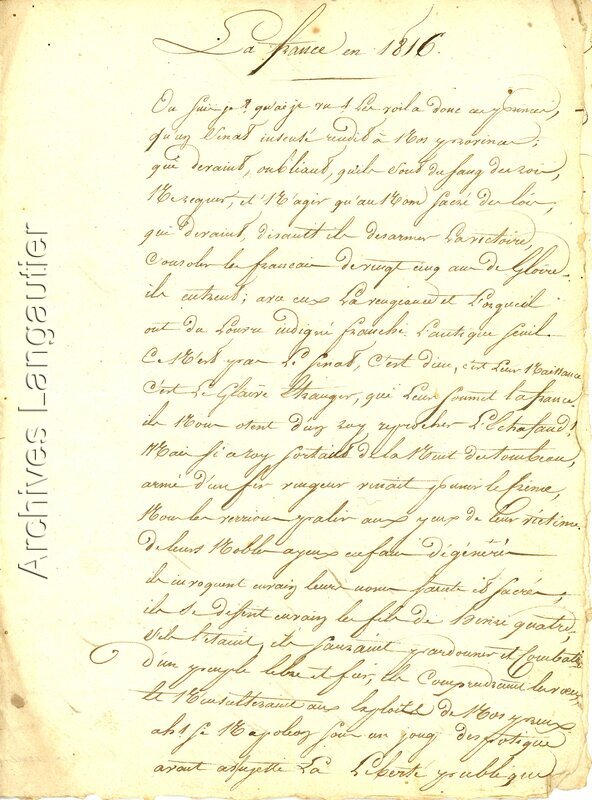 La france en 1816.
Ou suis je ? qu'aije vu ! Les voila donc ces princes,
qu'un Senat insensé rendit à Nos provinces,
qui devaint, oubliant, qu'ils sont du sang des rois,
Ne zequer, et N'agir qu'au Nom sacré des lois,
qui devaint, disait ils desarmer La victoire,
Consoler les francais de vingt cinq ans de Gloire.
ils entrent; avec eux La vengeance et L'orgueil
ont du Louvre indigné franchi L'antique seuil.
Ce N'est pas Le Senat, C'est dieu, c'est Leur Naissance
C'est Le Glaive Etranger, qui Leur soumet la france
ils Nous osent d'un roy reprocher L'Echafaud !
Mais si ce roy sortant de la Nuit du tombeau,
armé d'un fer vengeur venait punir le Crime,
Nous les verrions palir aux yeux de leur victime.
De leurs Nobles ayeux enfans dégénérés
ils invoquent envain leurs noms saints et sacrés,
ils se disent envain les fils de henri quatre,
s'ils l'étaint, ils sauraint pardonner et Combattre,
D'un peuple libre et fier, ils Comprendraint les vœux,
et N'insulteraint aux Exploits de Nos preux
ah ! si Napoleon sous un joug despotique
avait assujetti La Liberté publique
Archives Langautier